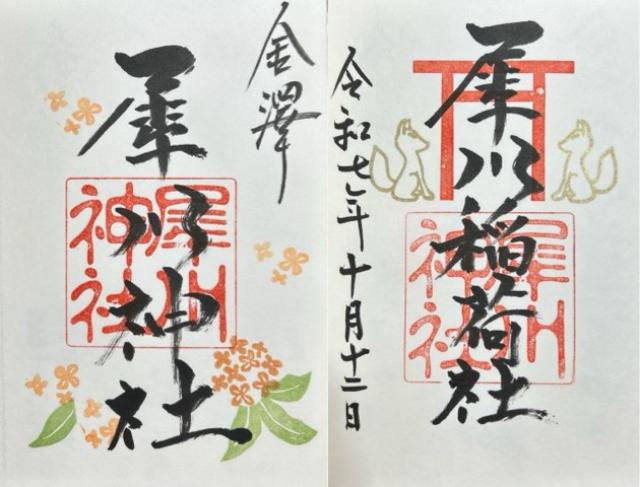 金澤
犀川神社
犀川神社
犀川稲荷社
犀川神社
令和七年十月十二日